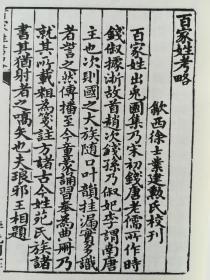 百家姓考略
歙西徐士業建勲氏校刊
百家姓出兔園集乃宋初錢唐老儒所作時
錢俶據浙故首趙次錢孫乃俶妃李謂南唐
主也次則國之大族隨口叶韻挂漏實多識
者訾之然傳播至今童蒙誦習奉為典冊乃
就其所載粗為箋註方諸古今姓苑氏族諸
書其猶射者之嚆矢也夫琅邪王相題